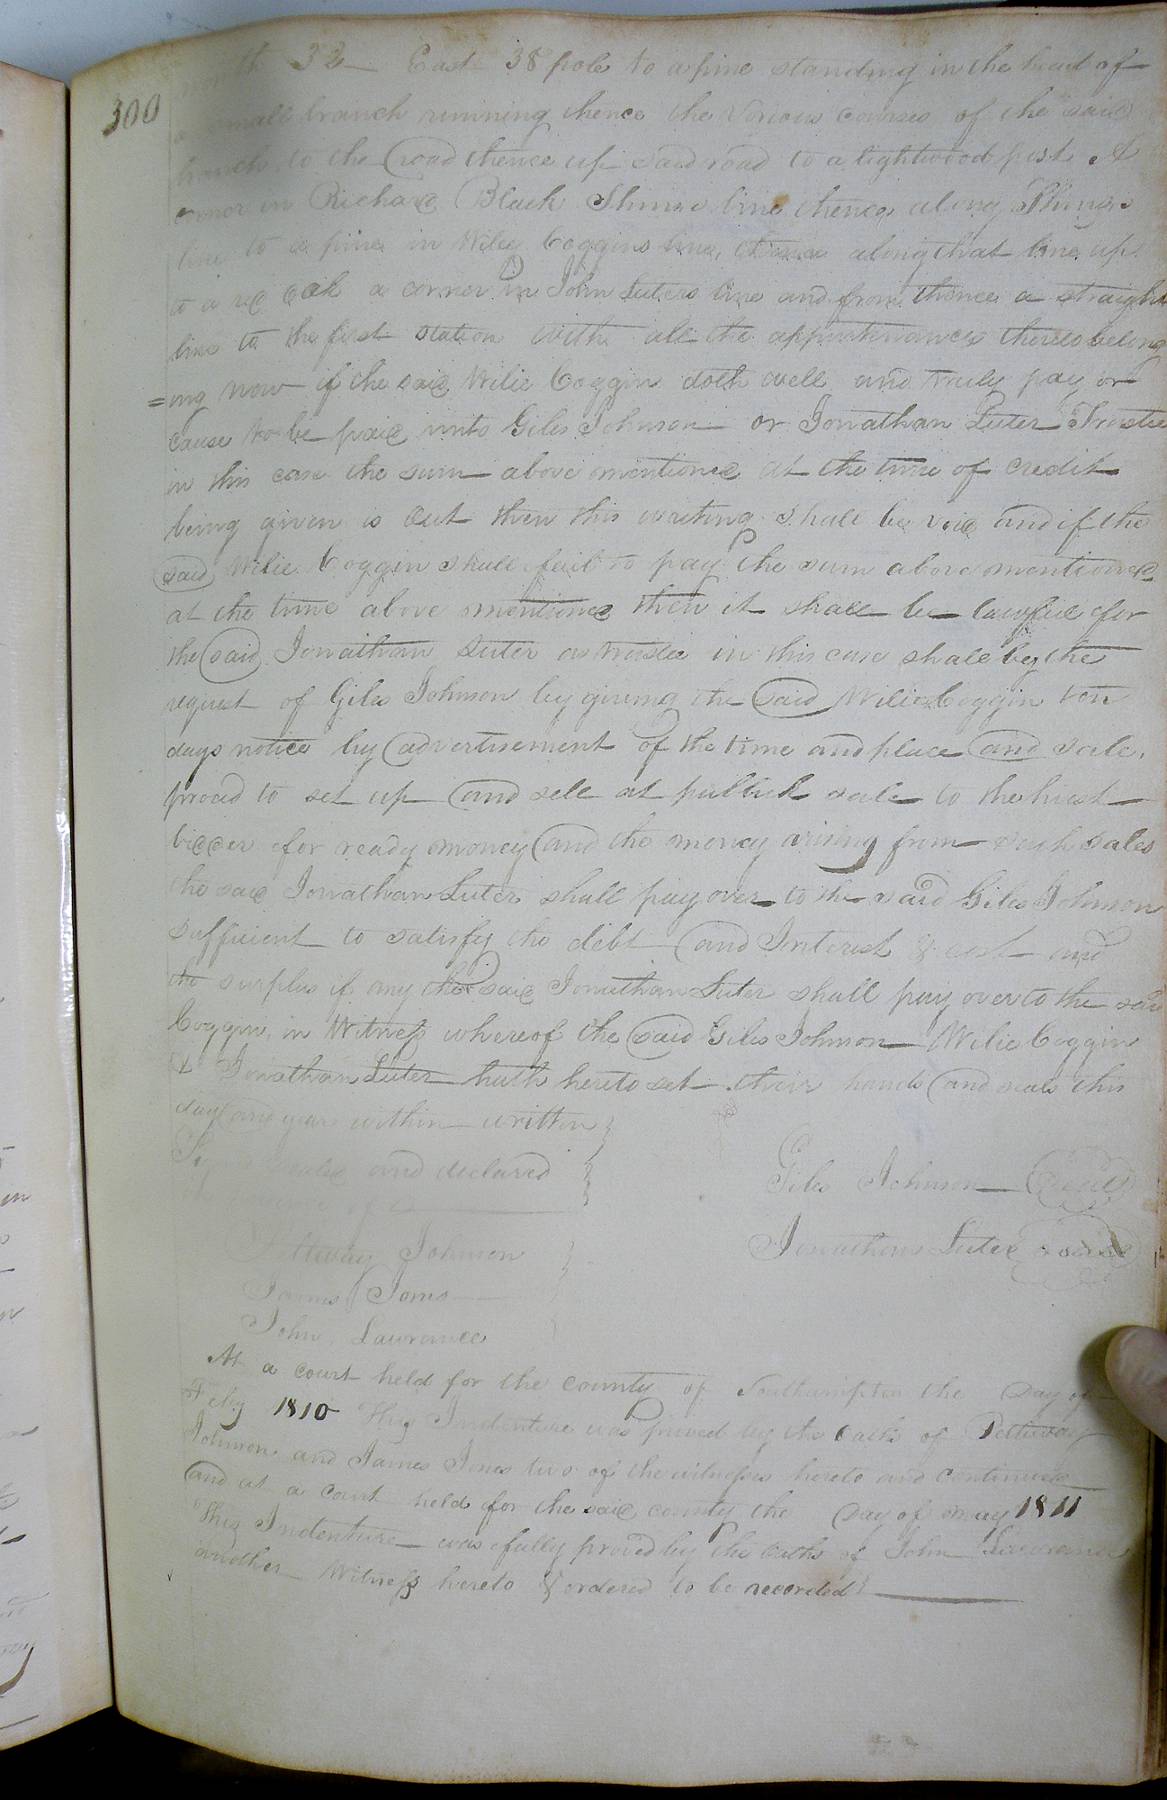 300
north 32 East 38 pole to a pine standing in the head of
a small branch running thence the Various courses of the said
branch to the road thence up said road to a lightwood post A
corner in Richard Black Shins line thence along Shins
line to a pine in Wiley Coggins line, thence along that line up
to a red oak a corner in John Luters line and from thence a straight
line to the first station with all the appurtenances thereto belong
=ing now if the said Wilie Coggin doth well and truly pay or
cause to be paid unto Giles Johnson or Jonathan Luter Trustee
in this case the sum above mentioned at the time of credit
being given is out then this writing shall be void and if the
said Wilie Coggin shall fail to pay the sum above mentioned
at the time above mentioned then it shall be lawfull for
the said Jonathan Luter as trustee in this case shall by the
request of Giles Johnson by giving the said Wilie Coggin ten
days notice by advertisement of the time and place and sale,
proced to set up and sell at publick sale to the hiest
bidder for ready money and the money arising from such sales
the said Jonathan Luter shall pay over to the said Giles Johnson
sufficient to satisfy the debt and Interest & cost and
the surplus if any the said Jonathan Luter shall pay over to the said
Coggin, in Witness whereof the said Giles Johnson Wilie Coggin
& Jonathan Luter hath hereto set their hands and seals this
day and year within written
Signed sealed and declared
Giles Johnson (seal)
in
Jonathan Luter (seal)
Pettway Johnson
James Jones
John Lawrance
At a court held for the county of Southampton the Day of
Feby 1810 This Indenture was proved by the oaths of Pettway
Johnson and James Jones two of the witnesses hereto and continued
and at a court held for the said county the Day of may 1811
This Indenture was fully proved by the oaths of John Lawrance
another Witness hereto & ordered to be recorded